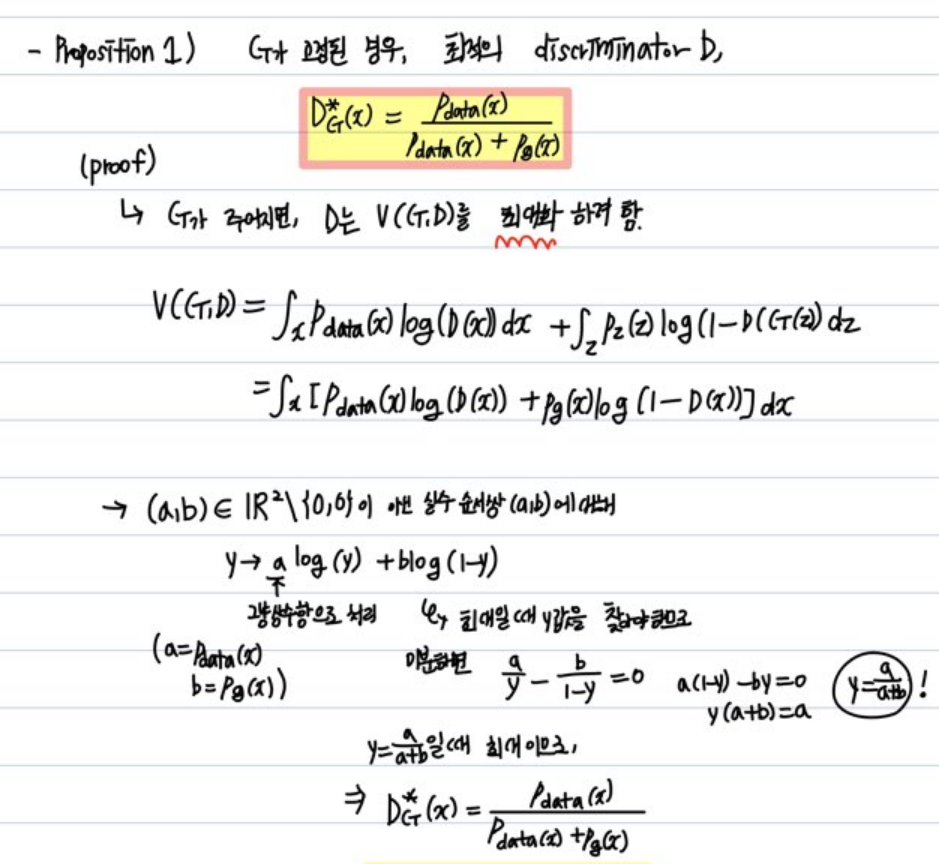 - Proposition 1) G가 고정된 경우, 최적의 discriminator D,
D*_G(x) = p_data(x) / (p_data(x) + p_g(x))
(proof)
↳ G가 주어지면, D는 V(G,D)를 최대화 하려 함.
V(G,D) = ∫_x p_data(x) log(D(x)) dx + ∫_z p_z(z) log(1-D(G(z)) dz
= ∫_x [p_data(x) log(D(x)) + p_g(x) log(1-D(x))] dx
→ (a,b) ∈ ℝ²\{0,0}이 아닌 실수 순서쌍 (a,b)에 대해
y → a log(y) + b log(1-y)
↑
그냥 상수항으로 처리 ↳ 최대일 때 y값을 찾아야 하므로
(a = p_data(x)
b = p_g(x))
미분하면 a/y - b/(1-y) = 0 a(1-y) - by = 0 y = a/(a+b) !
y(a+b) = a
y = a/(a+b) 일 때 최대이므로,
⇒ D*_G(x) = p_data(x) / (p_data(x) + p_g(x))